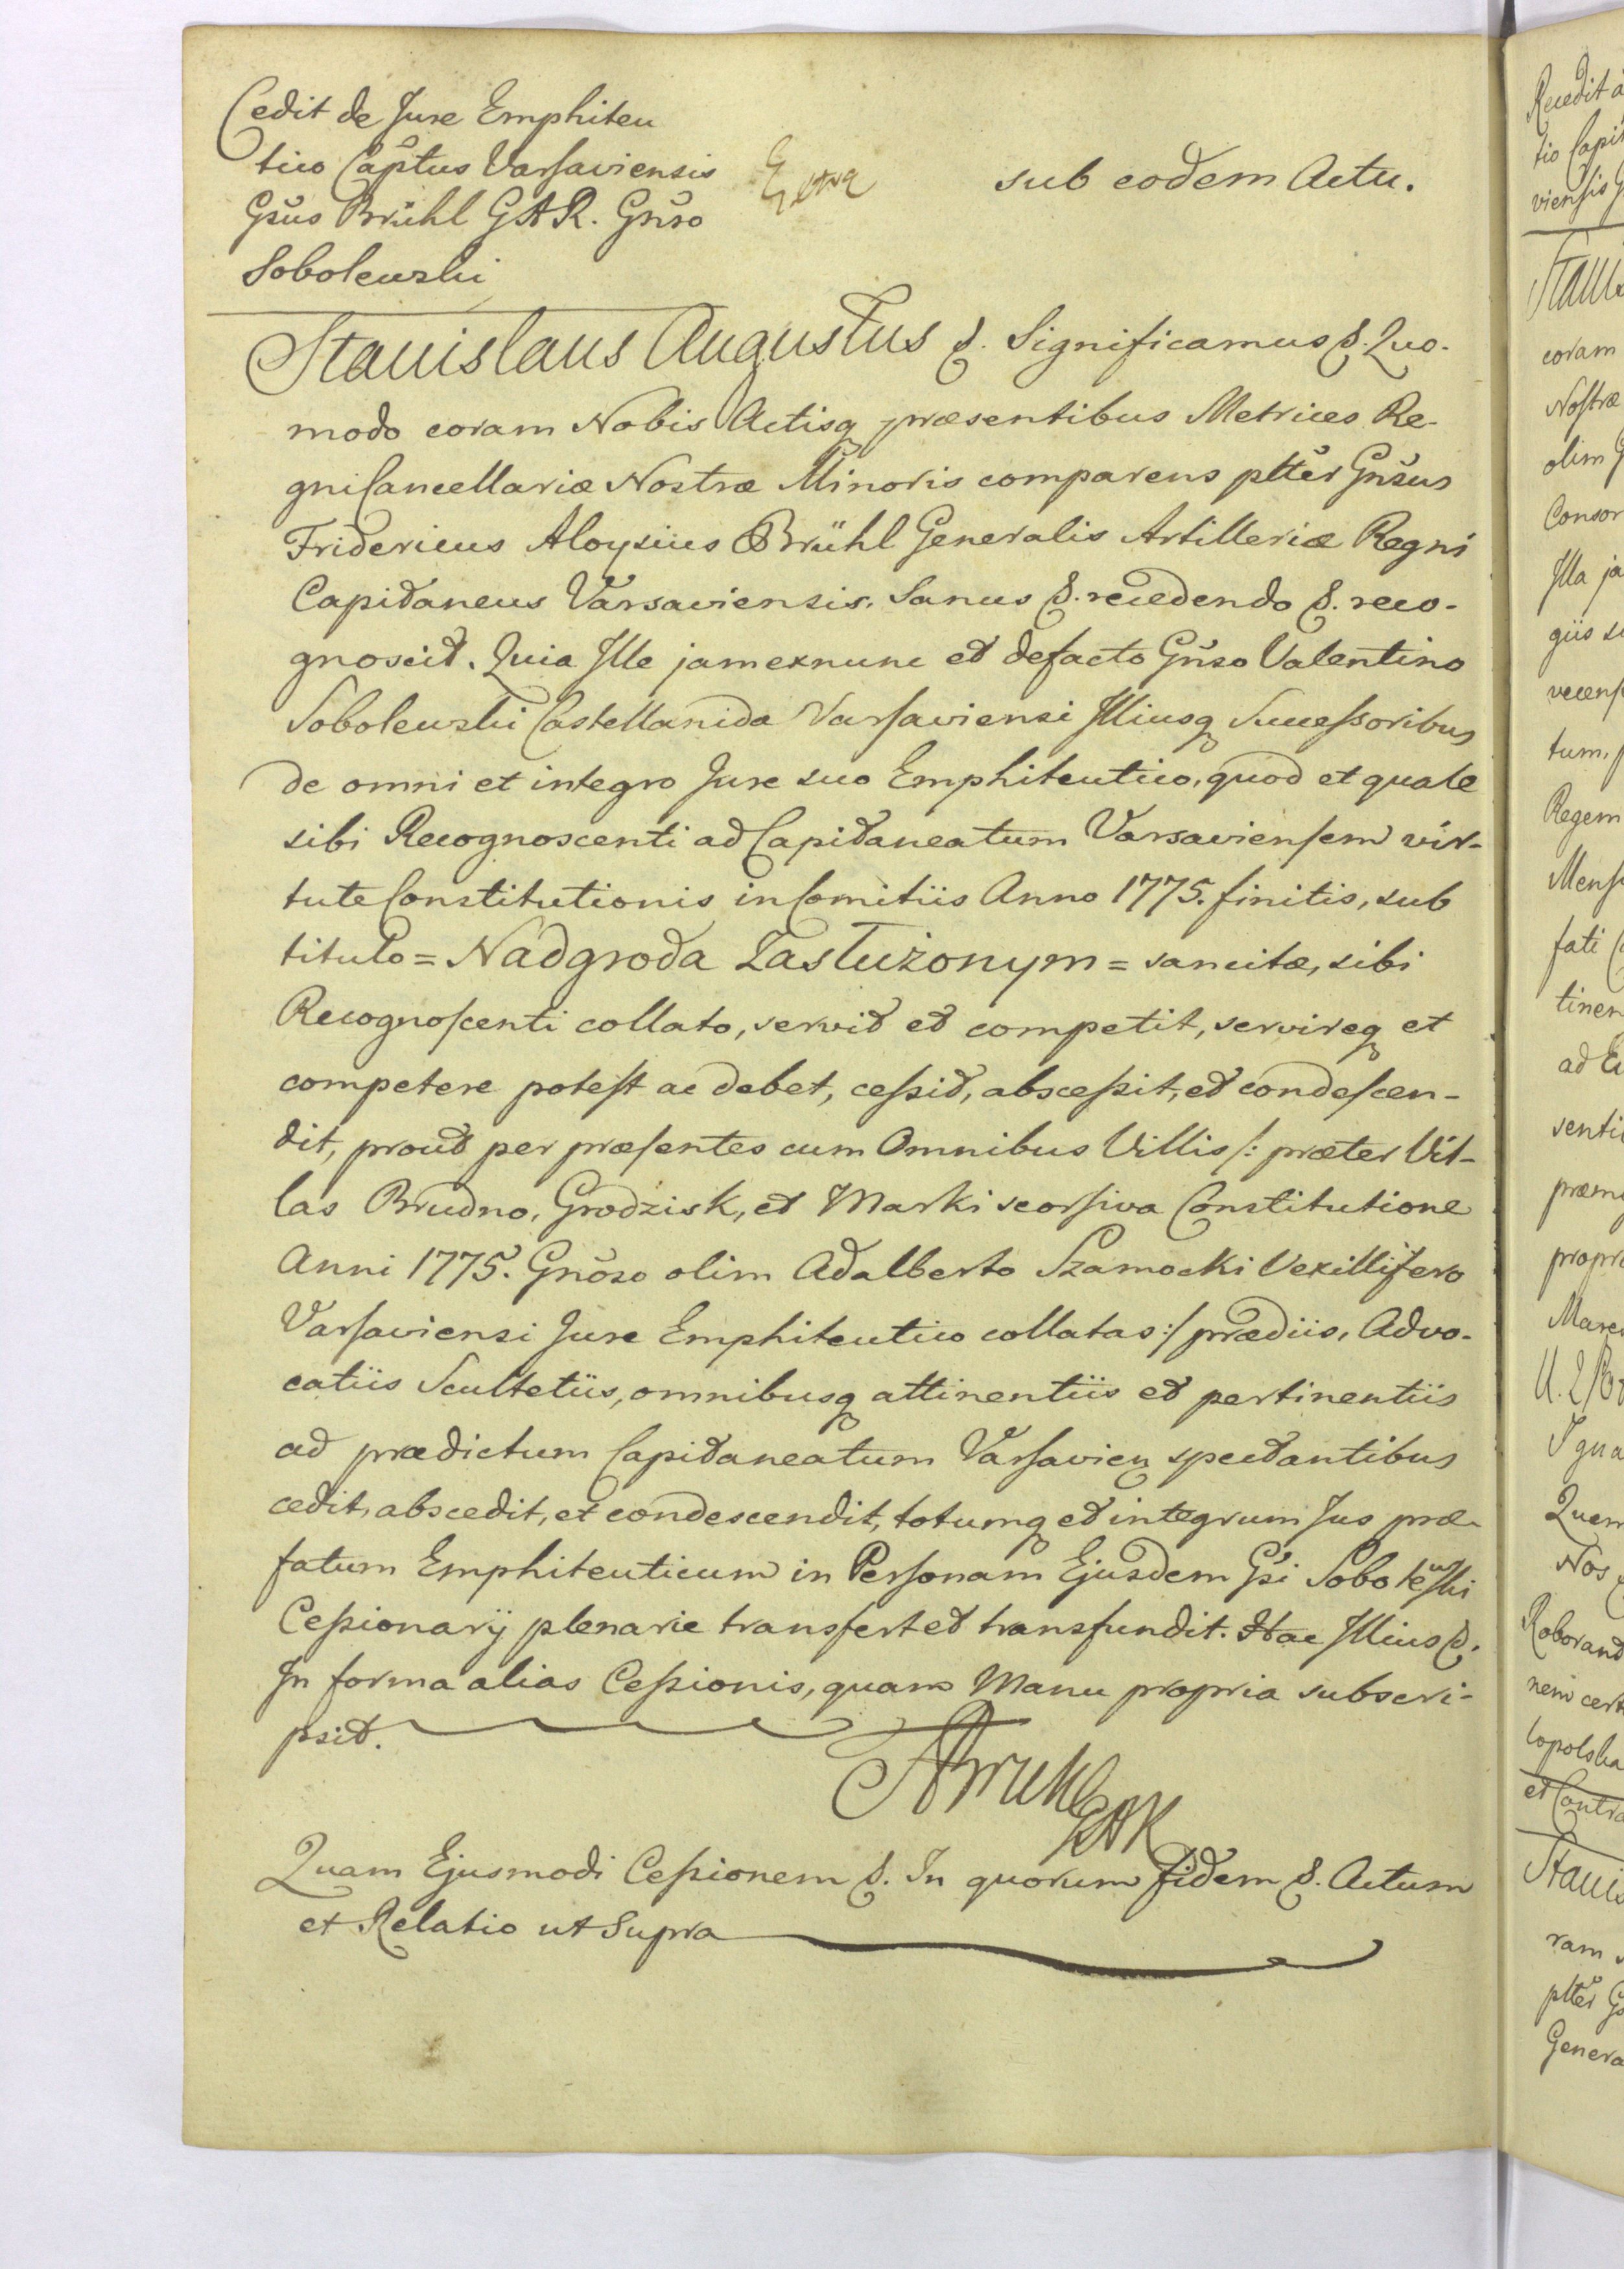 Cedit de Jure Emphiteu
tico Captus Varsaviensis
Gsus Brühl GAR. Gnso
Sobolewski
sub eodem Actu.
Stanislaus Augustus &. Significamus &. Quo-
modo coram Nobis Actisq præsentibus Metrices Re-
gni Cancellariæ Nostræ Minoris comparens pltter Gnsus
Fridericus Aloysius Brühl Generalis Artilleriæ Regni
Capitaneus Varsaviensis. Sanus &. recedendo &. reco-
gnoscit. Quia Ille jam exnunc et defacto Gnso Valentino
Sobolewski Castellanida Varsaviensi Illiusq Successoribus
de omni et integro Jure suo Emphiteutico, quod et quale
sibi Recognoscenti ad Capitaneatum Varsaviensem vir-
tute Constitutionis in Comitiis Anno 1775. finitis, sub
titulo = Nadgroda Zasłużonym = sancitæ, sibi
Recognoscenti collato, servit et competit, servireq et
competere potest ac debet, cessit, abscessit, et condescen-
dit, prout per præsentes cum Omnibus Villis /: præter Vil-
las Brudno, Grodzisk, et Marki seorsiva Constitutione
Anni 1775. Gnoso olim Adalberto Szamocki Vexillifero
Varsaviensi Jure Emphiteutico collatas :/ prædiis, Advo-
catiis Scultetiis, omnibusq attinentiis et pertinentiis
ad prædictum Capitaneatum Varsavien spectantibus
cedit, abscedit, et condescendit, totumq et integrum Jus præ-
fatum Emphiteuticum in Personam Ejusdem Gsi Sobolewski
Cessionarij plenarie transfert et transfundit. Hac Illius &.
In forma alias Cessionis, quam Manu propria subscri-
psit.
ABruhl GAK
Quam Ejusmodi Cessionem &. In quorum fidem &. Actum
et Relatio ut Supra